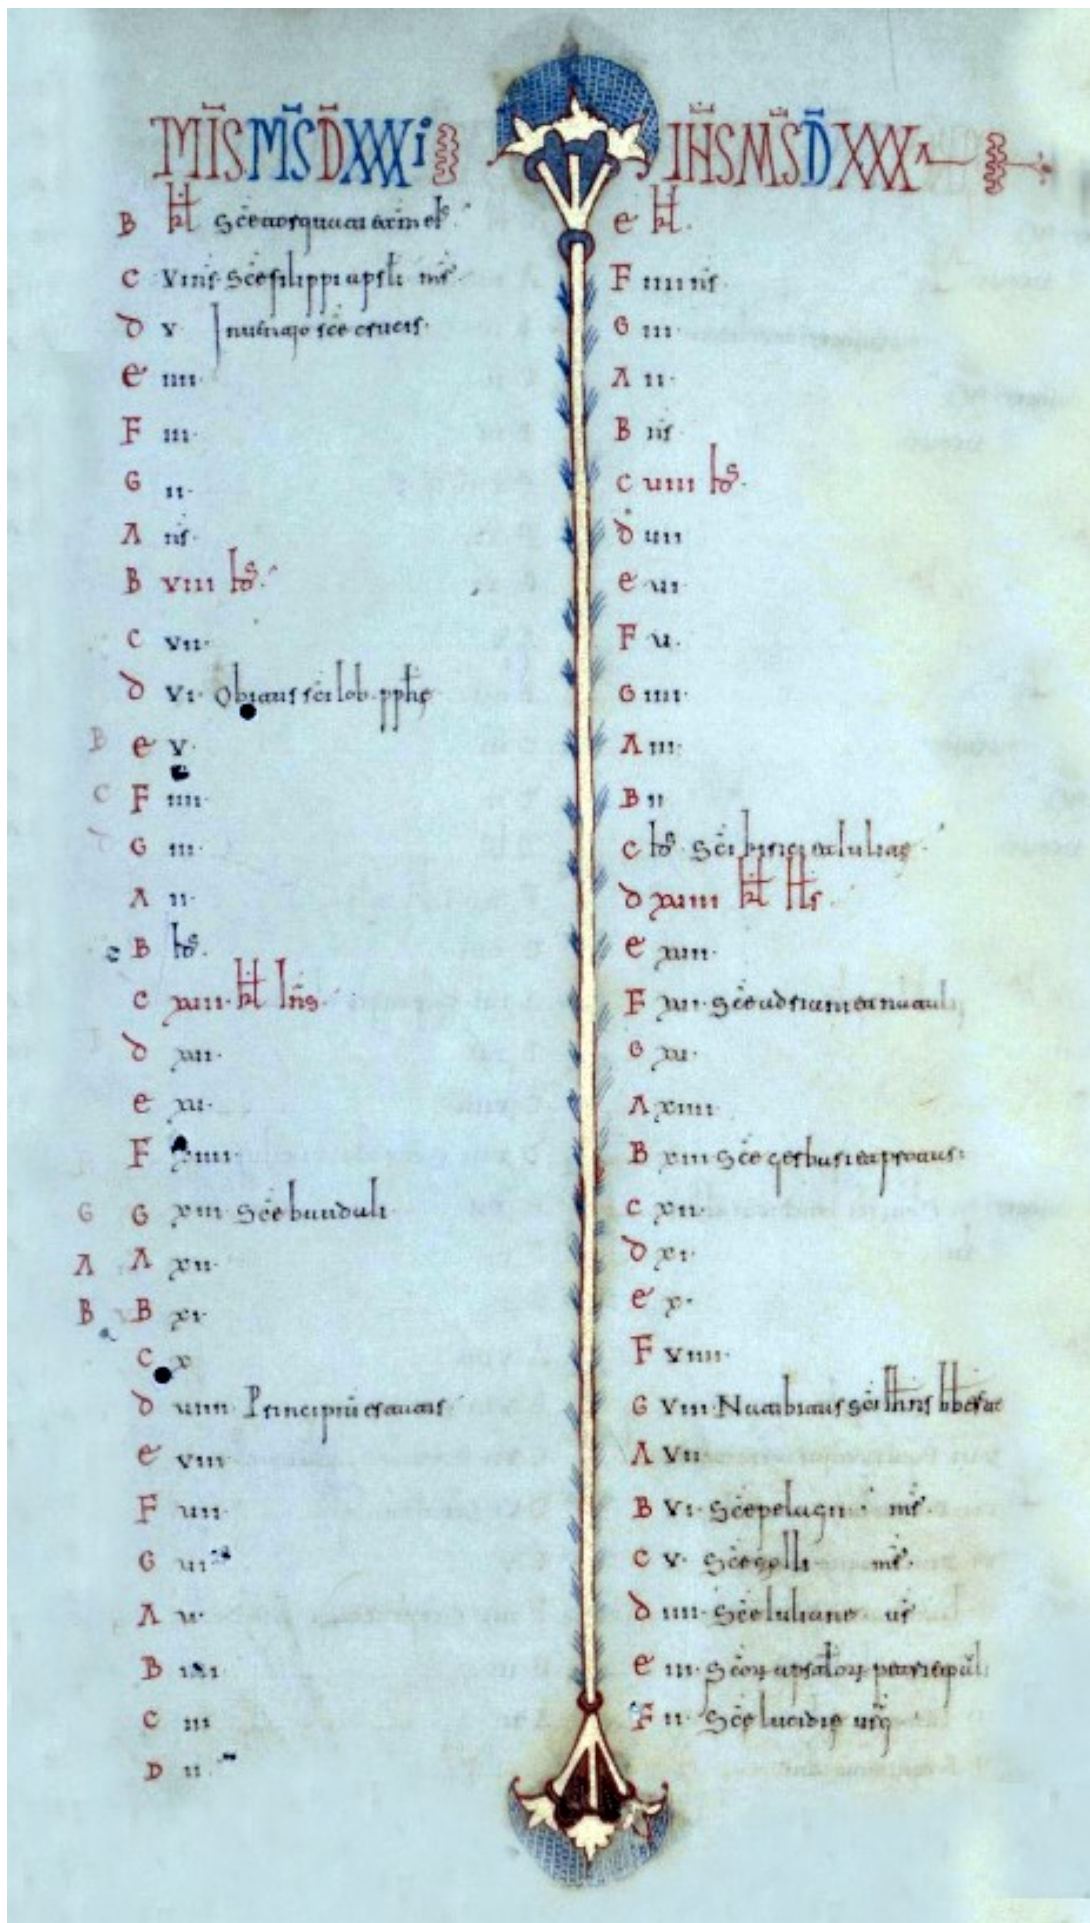 MIS MS D XXXI
B kl
C VI ns Sci filippi apsli ms
D V Inventjo sce crucis
e IIII
F III
G II
A ns
B VIII ids
C VII
D VI Obitus sci Iob pphe
B e V
C F IIII
D G III
A II
B ids
C XVII kl Ins
D XVI
e XV
F XIIII
G G XIII Sci bauduli
A A XII
B B XI
C X
D VIIII Principiu estatis
e VIII
F VII
G VI
A V
B IIII
C III
D II
IHS MS D XXX
e kl
F IIII ns
G III
A II
B ns
C VIII ids
D VII
e VI
F V
G IIII
A III
B II
C ids Sci
D XVIII kl
e XVII
F XVI Sci adriani
G XV
A XIIII
B XIII Sce gerbasi et protasi
C XII
D XI
e X
F VIIII
G VIII Nativitas sci Ihns
A VII
B VI Sci pelagii ms
C V Sci ms
D IIII Sce Iuliane vr
e III Scor apstolor petri et pauli
F II Sce lucidie